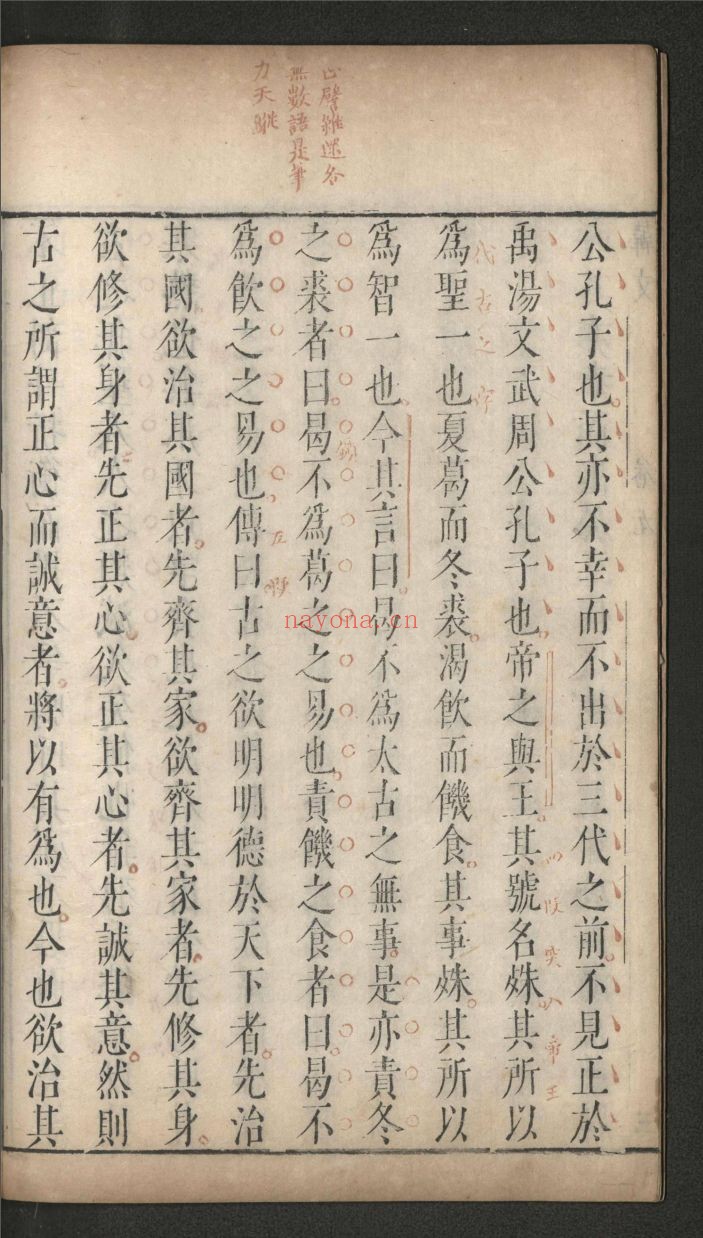 無數語是筆
力天縱
公孔子也其亦不幸而不出於三代之前不見正於
禹湯文武周公孔子也帝之與王其號名姝其所以
爲聖一也夏葛而冬裘渴飲而饑食其事姝其所以
爲智一也今其言曰曷不爲太古之無事是亦責冬
之裘者曰曷不爲葛之之易也責饑之食者曰曷不
爲飲之之易也傳曰古之欲明明德於天下者先治
其國欲治其國者先齊其家欲齊其家者先修其身
欲修其身者先正其心欲正其心者先誠其意然則
古之所謂正心而誠意者將以有爲也今也欲治其
nayona.cn